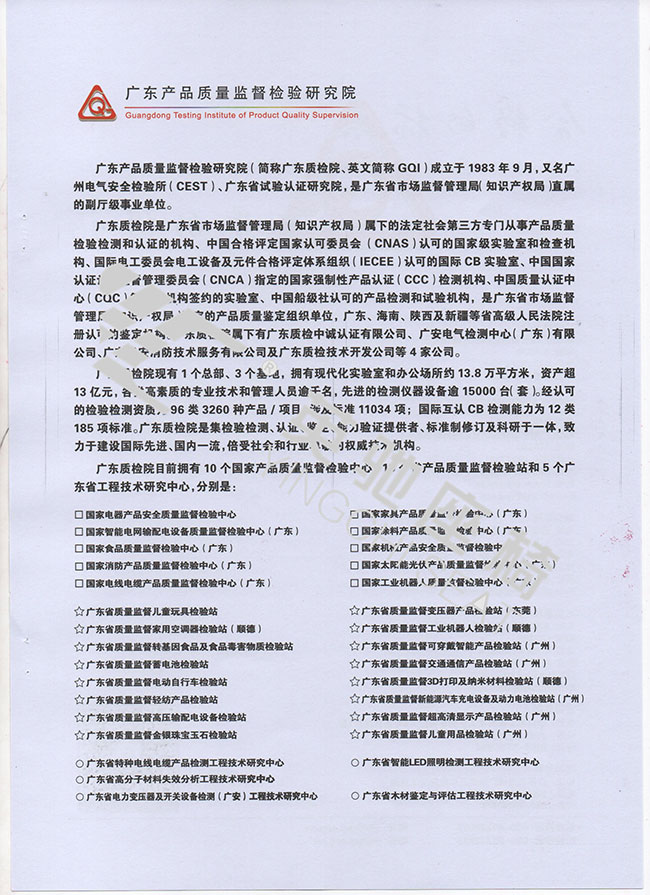 广东产品质量监督检验研究院
Guangdong Testing Institute of Product Quality Supervision
广东产品质量监督检验研究院（简称广东质检院、英文简称 GQI）成立于 1983 年 9 月，又名广
州电气安全检验所（CEST）、广东省试验认证研究院，是广东省市场监督管理局（知识产权局）直属
的副厅级事业单位。
广东质检院是广东省市场监督管理局（知识产权局）属下的法定社会第三方专门从事产品质量
检验检测和认证的机构、中国合格评定国家认可委员会（CNAS）认可的国家级实验室和检查机
构、国际电工委员会电工设备及元件合格评定体系组织（IECEE）认可的国际 CB 实验室、中国国家
认证 监督管理委员会（CNCA）指定的国家强制性产品认证（CCC）检测机构、中国质量认证中
心（CQC） 机构签约的实验室、中国船级社认可的产品检测和试验机构，是广东省市场监督
管理局 识产权局） 的产品质量鉴定组织单位，广东、海南、陕西及新疆等省高级人民法院注
册认可的鉴定机构。广东质 属下有广东质检中诚认证有限公司、广安电气检测中心（广东）有限
公司、广 消防技术服务有限公司及广东质检技术开发公司等 4 家公司。
广 检院现有 1 个总部、3 个基地，拥有现代化实验室和办公场所约 13.8 万平方米，资产超
13 亿元，各 高素质的专业技术和管理人员逾千名，先进的检测仪器设备逾 15000 台（套）。经认可
的检验检测资质 96 类 3260 种产品 / 项目 涉及标准 11034 项； 国际互认 CB 检测能力为 12 类
185 项标准。广东质检院是集检验检测、认证、鉴定、能力验证提供者、标准制修订及科研于一体，致
力于建设国际先进、国内一流，倍受社会和行业 的权威技术机构。
广东质检院目前拥有 10 个国家产品质量监督检验中心、1 产品质量监督检验站和 5 个广
东省工程技术研究中心，分别是：
□ 国家电器产品安全质量监督检验中心
□ 国家家具产品质量监督检验中心（广东）
□ 国家智能电网输配电设备质量监督检验中心（广东）
□ 国家涂料产品质量 检验中心（广东）
□ 国家食品质量监督检验中心（广东）
□ 国家机械产品安全质量监督检验中
□ 国家消防产品质量监督检验中心（广东）
□ 国家太阳能光伏产品质量监督检 （广东）
□ 国家电线电缆产品质量监督检验中心（广东）
□ 国家工业机器人质量监督检验中心（广东）
☆ 广东省质量监督儿童玩具检验站
☆ 广东省质量监督变压器产品检验站（东莞）
☆ 广东省质量监督家用空调器检验站（顺德）
☆ 广东省质量监督工业机器人检验站（顺德）
☆ 广东省质量监督转基因食品及食品毒害物质检验站
☆ 广东省质量监督可穿戴智能产品检验站（广州）
☆ 广东省质量监督蓄电池检验站
☆ 广东省质量监督交通通信产品检验站（广州）
☆ 广东省质量监督电动自行车检验站
☆ 广东省质量监督3D打印及纳米材料检验站（顺德）
☆ 广东省质量监督轻纺产品检验站
☆ 广东省质量监督新能源汽车充电设备及动力电池检验站（广州）
☆ 广东省质量监督高压输配电设备检验站
☆ 广东省质量监督超高清显示产品检验站（广州）
☆ 广东省质量监督金银珠宝玉石检验站
☆ 广东省质量监督儿童用品检验站（广州）
○ 广东省特种电线电缆产品检测工程技术研究中心
○ 广东省智能LED照明检测工程技术研究中心
○ 广东省高分子材料失效分析工程技术研究中心
○ 广东省电力变压器及开关设备检测（广安）工程技术研究中心
○ 广东省木材鉴定与评估工程技术研究中心